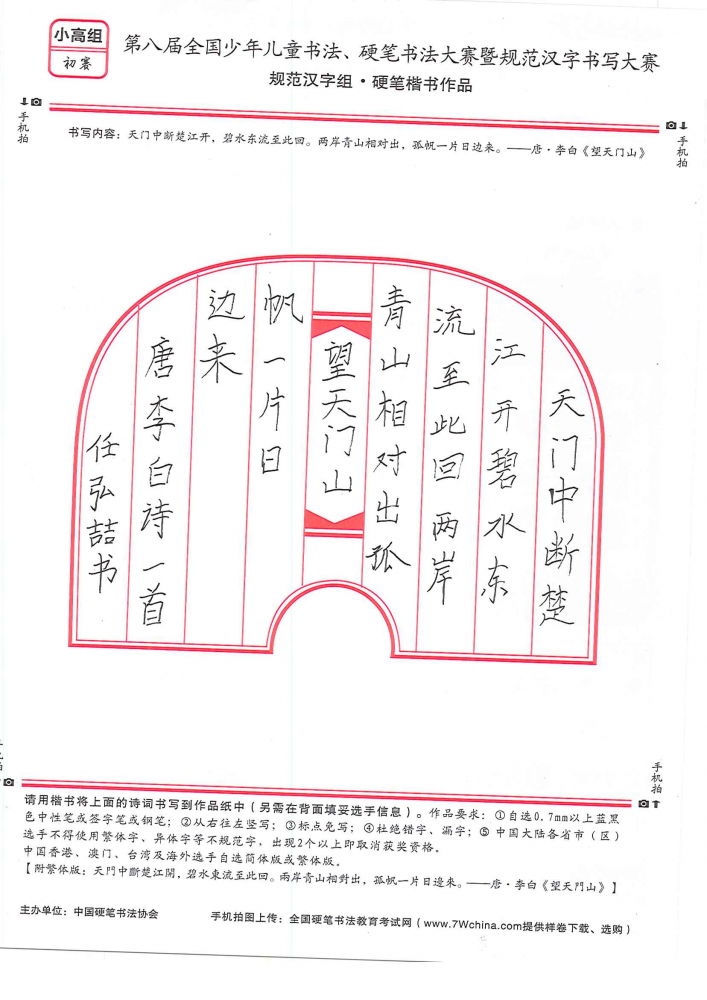 小高组
初赛
第八届全国少年儿童书法、硬笔书法大赛暨规范汉字书写大赛
规范汉字组·硬笔楷书作品
手机拍
手机拍
书写内容：天门中断楚江开，碧水东流至此回。两岸青山相对出，孤帆一片日边来。——唐·李白《望天门山》
天门中断楚
江开碧水东
流至此回两岸
青山相对出孤
望天门山
帆一片日
边来
唐李白诗一首
任弘喆书
手机拍
请用楷书将上面的诗词书写到作品纸中（另需在背面填妥选手信息）。作品要求：①自选0.7mm以上蓝黑
色中性笔或签字笔或钢笔；②从右往左竖写；③标点免写；④杜绝错字、漏字；⑤中国大陆各省市（区）
选手不得使用繁体字、异体字等不规范字，出现2个以上即取消获奖资格。
中国香港、澳门、台湾及海外选手自选简体版或繁体版。
【附繁体版：天門中斷楚江開，碧水東流至此回。兩岸青山相對出，孤帆一片日邊來。——唐·李白《望天門山》】
主办单位：中国硬笔书法协会
手机拍图上传：全国硬笔书法教育考试网（www.7Wchina.com提供样卷下载、选购）